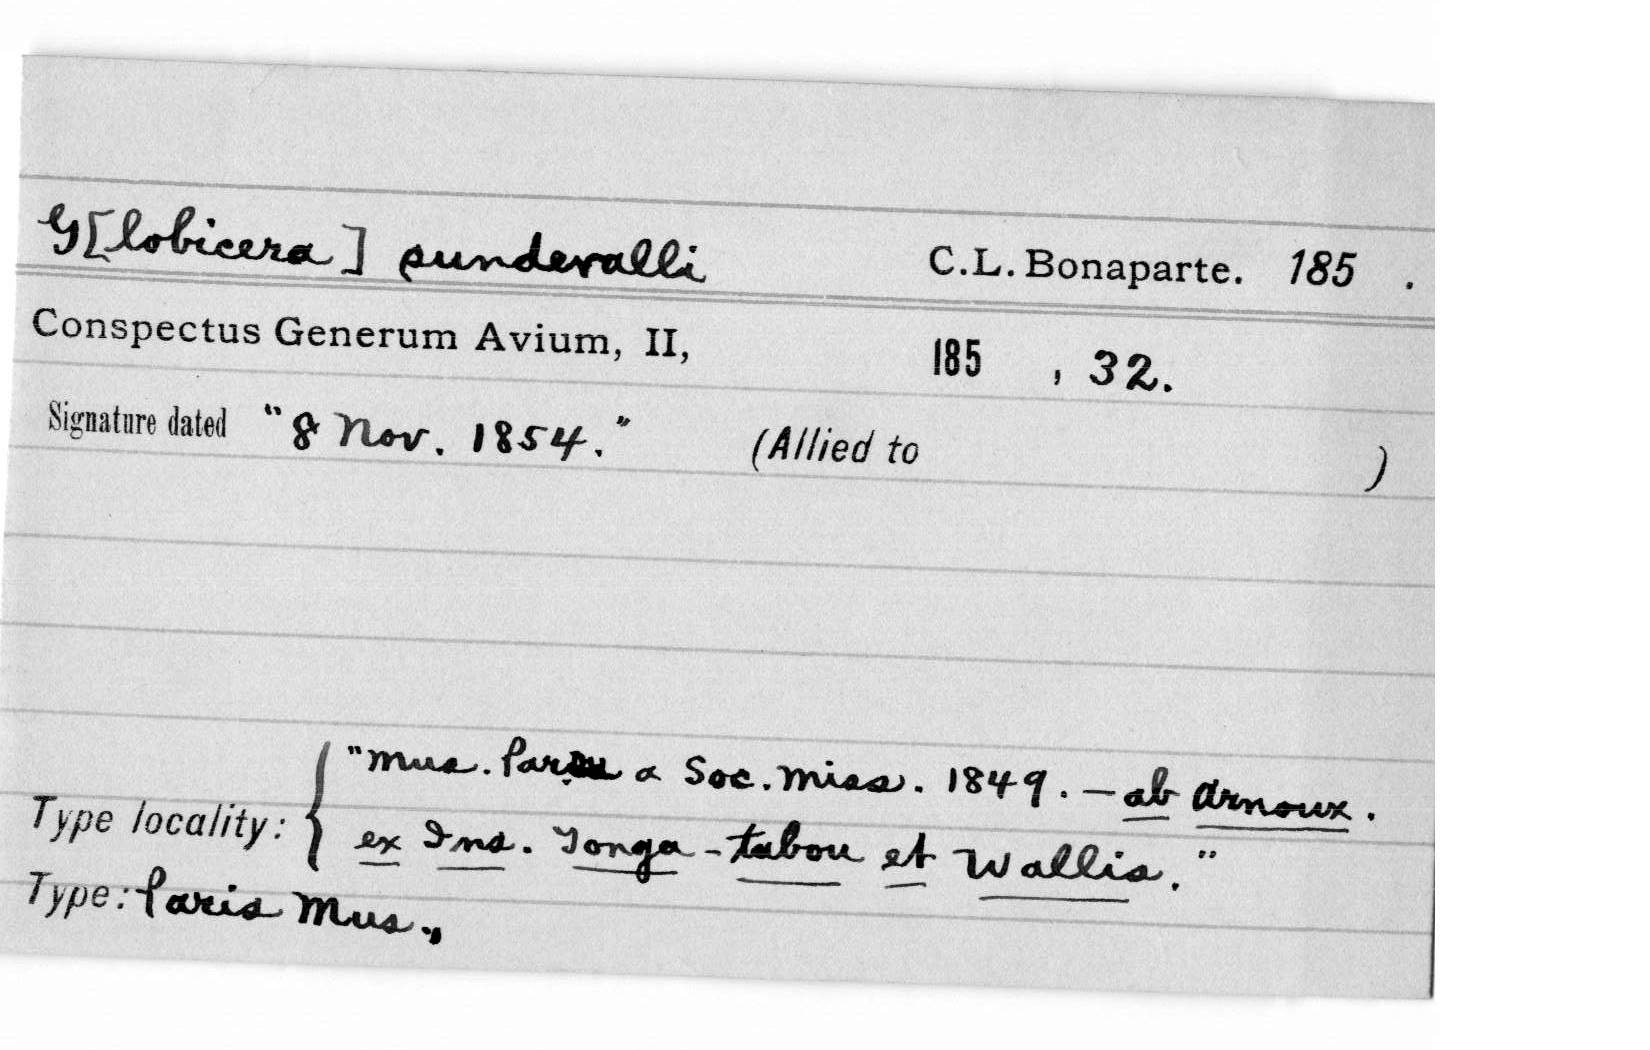 G[lobicera] sundevalli C.L. Bonaparte. 185 .
Conspectus Generum Avium, II, 185 , 32.
Signature dated "8 Nov. 1854." (Allied to )
"Mus. a Soc. Miss. 1849. — ab Arnoux.
Type locality:
ex Ins. Tonga-tabou et Wallis."
Type: Paris Mus.,